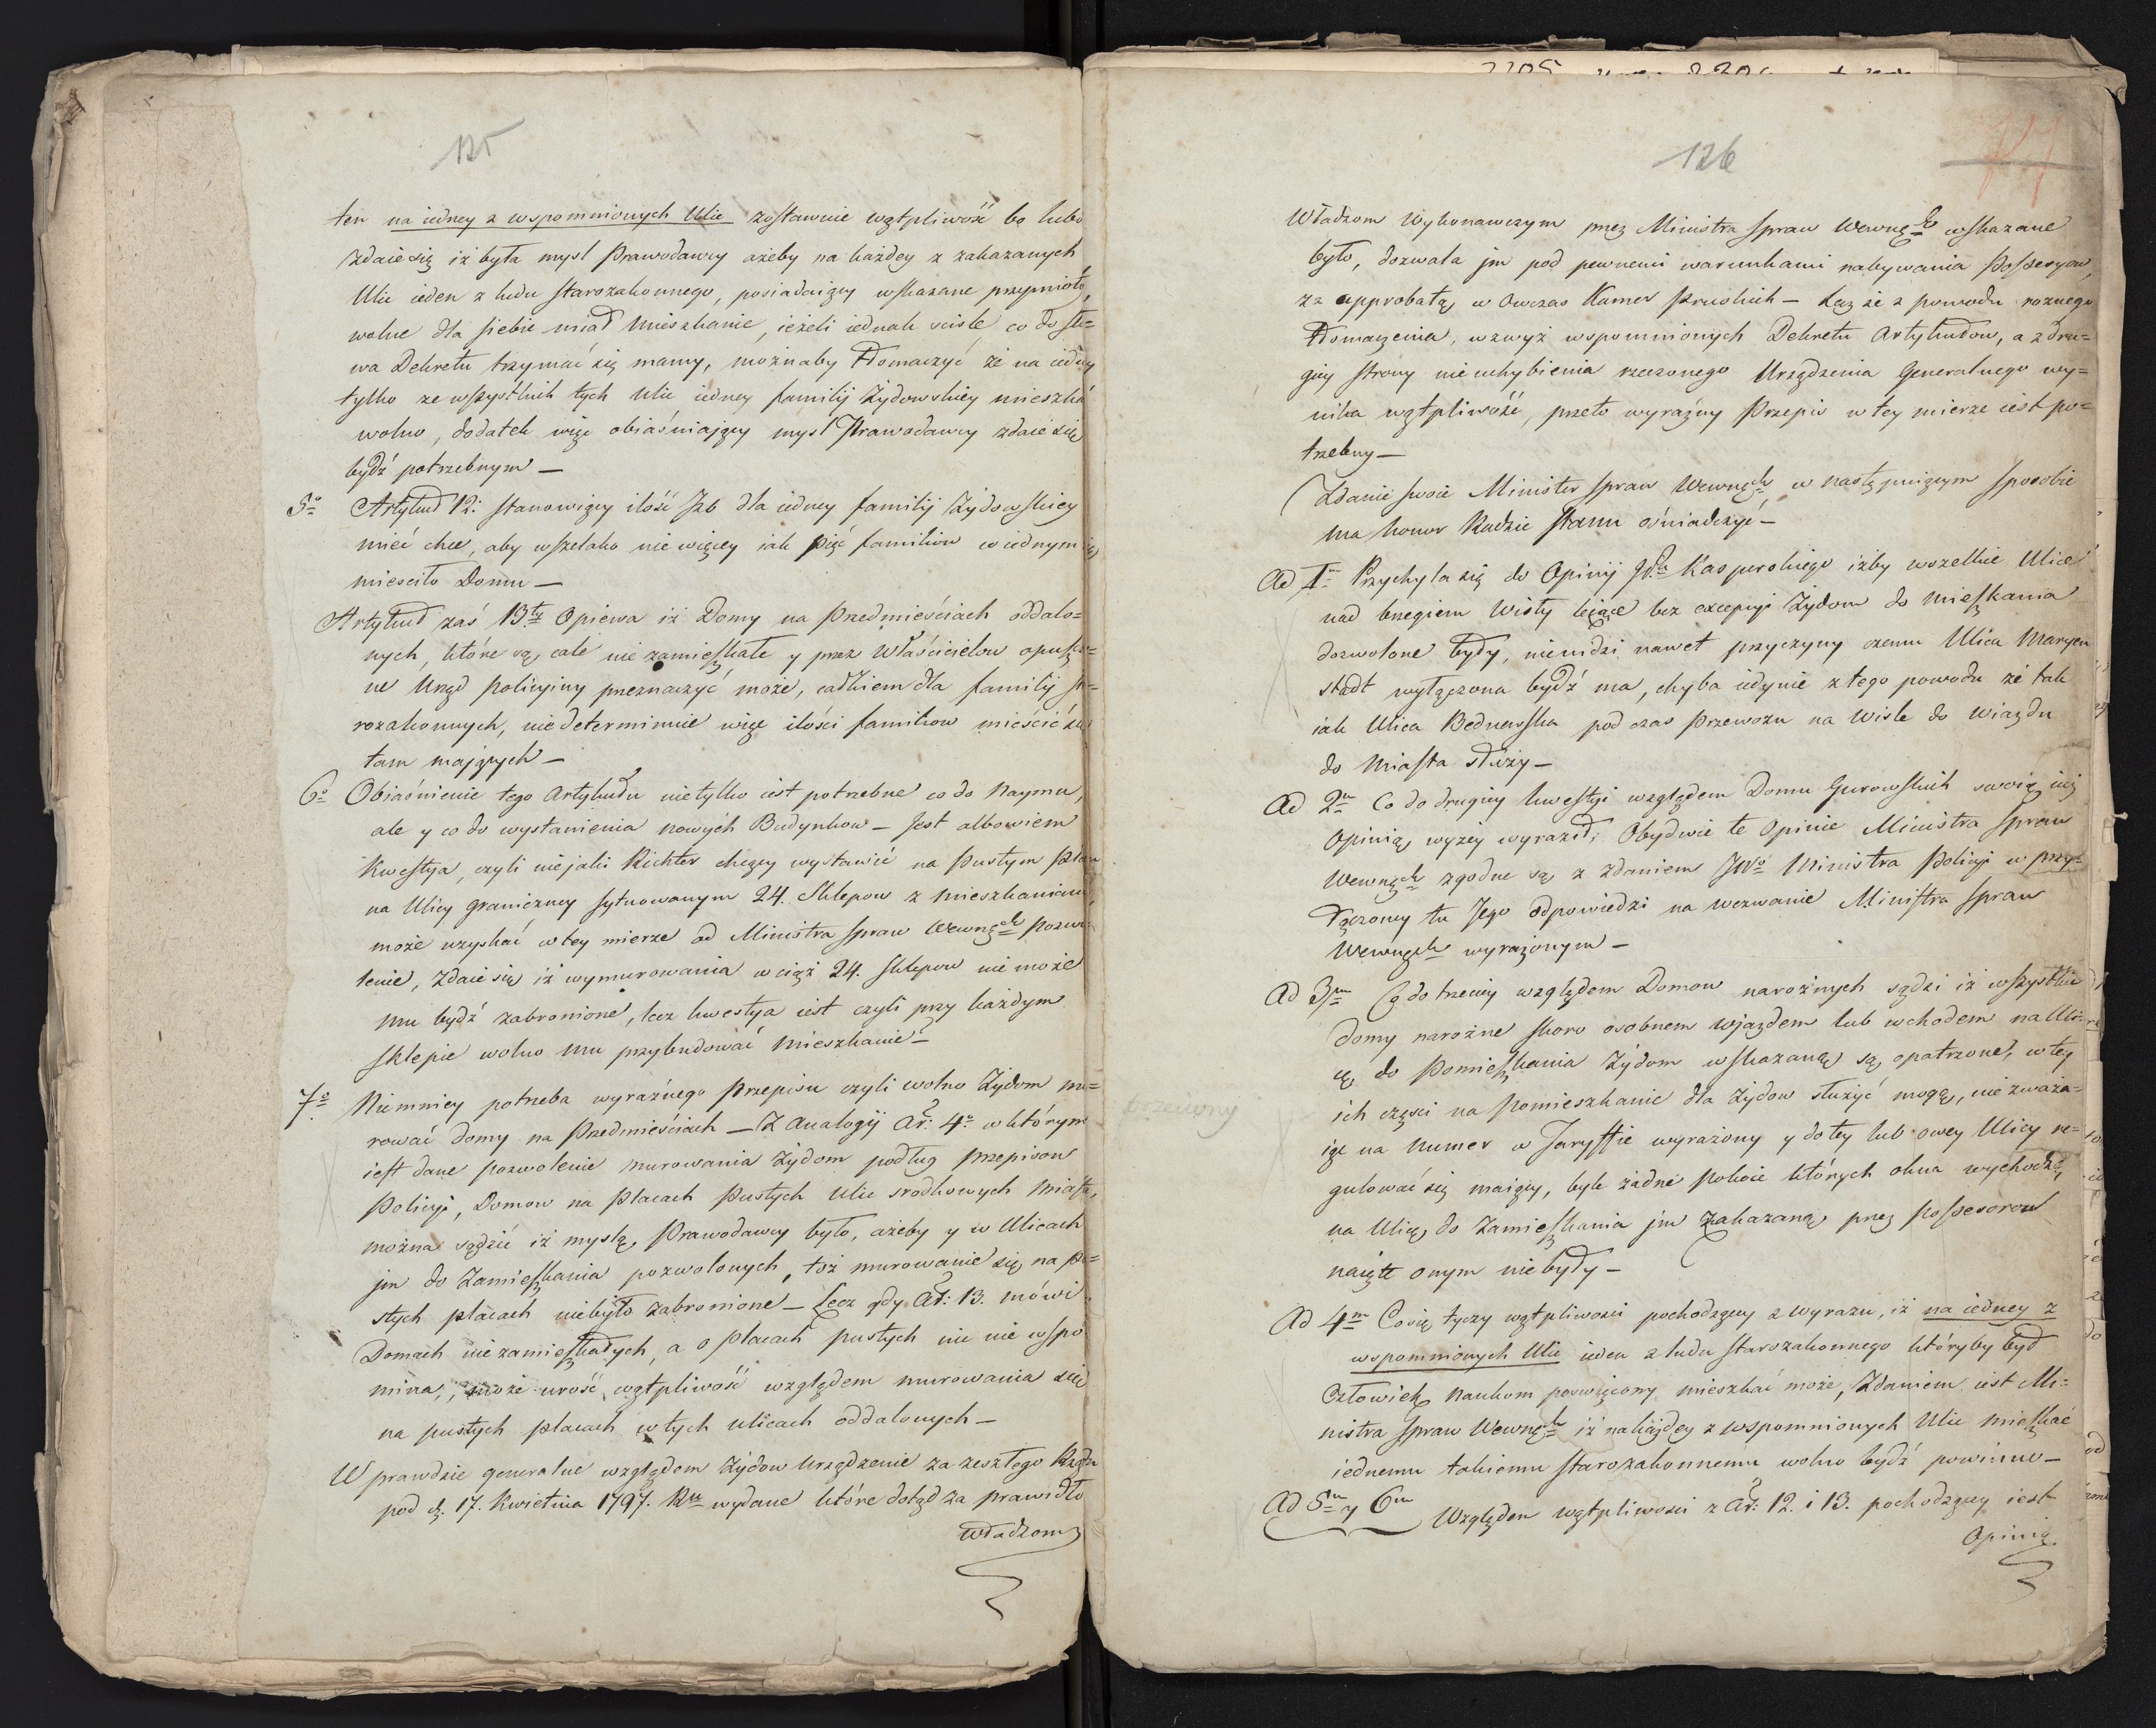 125
ten na iedney z wspomnionych Ulic zostawuie wątpliwość bo lubo
zdaie się iż była mysl Prawodawcy ażeby na każdey z zakazanych
Ulic ieden z ludu starozakonnego, posiadaiący wskazane przymioty,
wolne dla siebie miał mieszkanie, ieżeli iednak scisle co do sło=
wa Dekretu trzymać się mamy, możnaby tłomaczyć że na iedney
tylko ze wszystkich tych Ulic iedney familij Żydowskiey mieszkać
wolno, dodatek więc obiaśniaiący mysl Prawodawcy zdaie się
bydź potrzebnym —
5o Artykuł 12: stanowiący ilość Izb dla iedney familij Żydowskiey
mieć chce, aby wszelako nie więcey iak pięć familiow w iednym się
miescito Domu —
Artykuł zaś 13ty Opiewa iż Domy na Przedmieściach oddalo=
nych, które są cale nie zamieszkałe y przez Właścicielow opuszczo=
ne Urząd Policyiny przeznaczyć może, całkiem dla familij sta=
rozakonnych, nie determinuie więc ilości familiow mieścić się
tam maiących —
6o Obiaśnienie tego Artykułu nietylko iest potrzebne co do Naymu,
ale y co do wystawienia nowych Budynkow — Jest albowiem
Kwestya, czyli niejaki Richter chcący wystawić na Pustym Placu
na Ulicy graniczney sytuowanym 24. Sklepow z mieszkaniami
może uzyskać w tey mierze od Ministra Spraw Wewnęch pozwo
lenie, Zdaie się iż wymurowania w ciąż 24. Sklepow nie może
mu bydź zabronione, lecz kwestya iest czyli przy każdym
sklepie wolno mu przybudować Mieszkanie —
7o Niemniey potrzeba wyraźnego Przepisu czyli wolno Żydom mu=
rować domy na Przedmieściach — Z Analogij Ar: 4o w którym
iest dane pozwolenie murowania Żydom podług Przepisow
Policyi, Domow na Placach Pustych Ulic srodkowych Miasta,
można sądzić iż myslą Prawodawcy było, ażeby y w Ulicach
jm do Zamieszkania pozwolonych, toż murowanie się na pu=
stych placach niebyło zabronione — Lecz gdy Ar: 13. mówi o
Domach niezamieszkałych, a o placach pustych nic nie wspo
mina, może urość wątpliwość względem murowania się
na pustych placach w tych ulicach oddalonych —
W prawdzie generalne względem Żydow Urządzenie za zeszłego Rządu
pod d. 17. Kwietnia 1797. Ru wydane które dotąd za prawidło
Władzom
126
Władzom Wykonawczym przez Ministra Spraw Wewnęch wskazane
było, dozwala jm pod pewnemi warunkami nabywania Possesyow,
za approbatą w Owczas Kamer Pruskich — Lecz że z powodu roznego
tłomaczenia, wzwyż wspomnionych Dekretu Artykułow, a z dru=
giey strony nieuchybienia rzeczonego Urządzenia Generalnego wy=
nika wątpliwość, przeto wyraźny Przepis w tey mierze iest po=
trzebny —
Zdanie swoie Minister Spraw Wewnęch w następuiącym sposobie
ma honor Radzie Stanu oświadczyć —
Ad 1m Przychyla się do Opinij Kasperskiego iżby wszelkie Ulice
nad brzegiem Wisły leżące bez excepcyi Żydom do Mieszkania
dozwolone były, niewidzi nawet przyczyny czemu Ulica Maryen
stadt wyłączona bydź ma, chyba iedynie z tego powodu że tak
iak Ulica Bednarska pod czas Przewozu na Wisle do Wiazdu
do Miasta służy —
Ad 2m Co do drugiey kwestyi względem Domu Gurowskich swoią iuż
Opinią wyżey wyraził, Obydwie te Opinie Ministra Spraw
Wewnęch zgodne są z zdaniem JWo Ministra Policyi w przy=
łączoney tu Jego odpowiedzi na wezwanie Ministra Spraw
Wewnęch wyrażonym —
Ad 3m Co do trzeciey względem Domow narożnych sądzi iż wszystkie
Domy narożne skoro osobnem wjazdem lub wchodem na Uli=
cę do Pomieszkania Żydom wskazaną są opatrzone, w tey
ich części na pomieszkanie dla Żydow służyć mogą, nie zważa=
iąc na Numer w Taryffie wyrażony y do tey lub owey Ulicy re=
gulować się maiący, byle żadne Pokoie których okna wychodzą
na Ulicę do Zamieszkania jm Zakazaną przez Possesorow
naięte onym niebyły —
Ad 4m Co się tyczy wątpliwosci pochodzącey z wyrazu, iż na iedney z
wspomnionych Ulic ieden z ludu starozakonnego któryby był
Człowiek Naukom poswięcony mieszkać może, Zdaniem iest Mi=
nistra Spraw Wewnęch iż na każdey z wspomnionych Ulic mieszkać
iednemu takiemu starozakonnemu wolno bydź powinno —
Ad 5m y 6m Względem wątpliwosci z Ar: 12. i 13. pochodzącey iest
Opinią